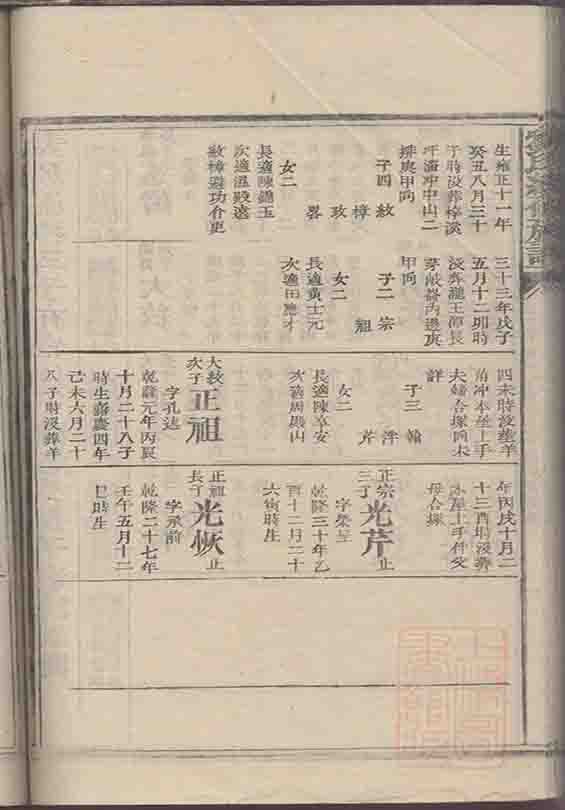 生雍正十一年
癸丑八月三十
子時沒葬梓溪
坪湓冲中山二
排庚甲向
子四 敘
樟
玫
畧
女二
長適陳鐤玉
次適溫殿遠
敘樟遊功介更
三十三年戊子
五月十二卯時
沒葬瀧王
甲向
子二 宗
祖
女二
長適黄士元
次適田應才
四未時沒葬羊
角冲本塋上手
夫婦合塚向未
詳
子三 翰
泮
芹
女二
長適陳享安
次適周殿山
大敘
次子 正祖
字孔述
乾隆元年丙辰
十月二十八子
時生嘉慶四年
己未六月二十
八子時沒葬羊
年丙戌十月二
十三酉時沒葬
水屋上手仵父
母合塚
正宗
三子 光芹 止
字榮呈
乾隆三十年乙
酉十二月二十
六寅時生
正祖
長子 光恢 止
字承前
乾隆二十七年
壬午五月十二
巳時生